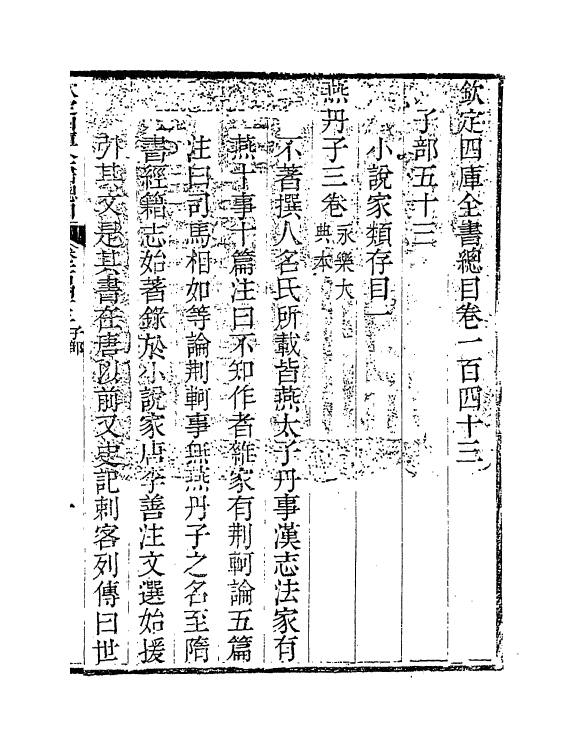 欽定四庫全書總目卷一百四十三
子部五十三
小說家類存目一
燕丹子三卷永樂大
典本
不著撰人名氏所載皆燕太子丹事漢志法家有
燕十事十篇注曰不知作者雜家有荆軻論五篇
注曰司馬相如等論荆軻事無燕丹子之名至隋
書經籍志始著錄於小說家唐李善注文選始援
引其文是其書在唐以前又史記刺客列傳曰世